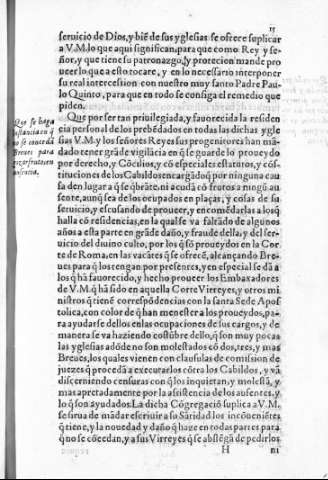 11
seruicio de Dios, y biẽ de sus yglesias se ofrece suplicar
a V.M. lo que aqui significan, para que como Rey y se-
ñor, y que tiene su patronazgo, y proteccion mande pro
ueer lo que a esto tocare, y en lo necessario interponer
su real intercession con nuestro muy santo Padre Pau-
lo Quinto, para que en todo se consiga el remedio que
piden.
Que se haga
instancia en q̃
no se conceda
Breues para
en ausencia.
Que por ser tan priuilegiada, y fauorecida la residen
cia personal de los prebẽdados en todas las dichas ygle
sias V.M. y los señores Reyes sus progenitores han mã-
dado tener grãde vigilãcia en q̃ se guarde lo proueydo
por derecho, y Cõcilios, y cõ especiales estatutos, y cõs-
tituciones de los Cabildos encargãdo q̃ por ninguna cau
sa den lugar a q̃ se q̃brãte, ni acudã cõ frutos a ningũ au
sente, aunq̃ sea de los ocupados en plaças, y cosas de su
seruicio, y escusando de proueer, y encomẽdarlas a los q̃
halla cõ residencias, en la qual se va faltãdo de algunos
años a esta parte en grãde daño, y fraude della, y del ser-
uicio del diuino culto, por los q̃ sõ proueydos en la Cor
te de Roma, en las vacãtes q̃ se ofrecẽ, alcançando Bre-
ues para q̃ los tengan por presentes, y en especial se dã a
los q̃ hã fauorecido, y hecho proueer los Embaxadores
de V.M. q̃ hã sido en aquella Corte Virreyes, y otros mi
nistros q̃ tienẽ correspõdẽcias con la santa Sede Apos
tolica, con color de q̃ han menester a los proueydos, pa-
ra ayudarse dellos en las ocupaciones de sus cargos, y de
manera se va haziendo costũbre dello, q̃ son muy pocas
las yglesias adõde no son molestados cõ dos, tres, y mas
Breues, los quales vienen con clausulas de comission de
juezes q̃ procedã a executarlos cõtra los Cabildos, y vã
discerniendo censuras con q̃ los inquietan, y molestã, y
mas apretadamente por la assistencia de los ausentes, y
lo q̃ son ayudados. La dicha Cõgregaciõ suplica a V.M.
se sirua de mãdar escriuir a su Sãtidad los incõueniẽtes
q̃ tiene, y la nouedad y daño q̃ haze en todas partes para
q̃ no se cõcedan, y a sus Virreyes q̃ se abstẽgã de pedirlos
H
ni